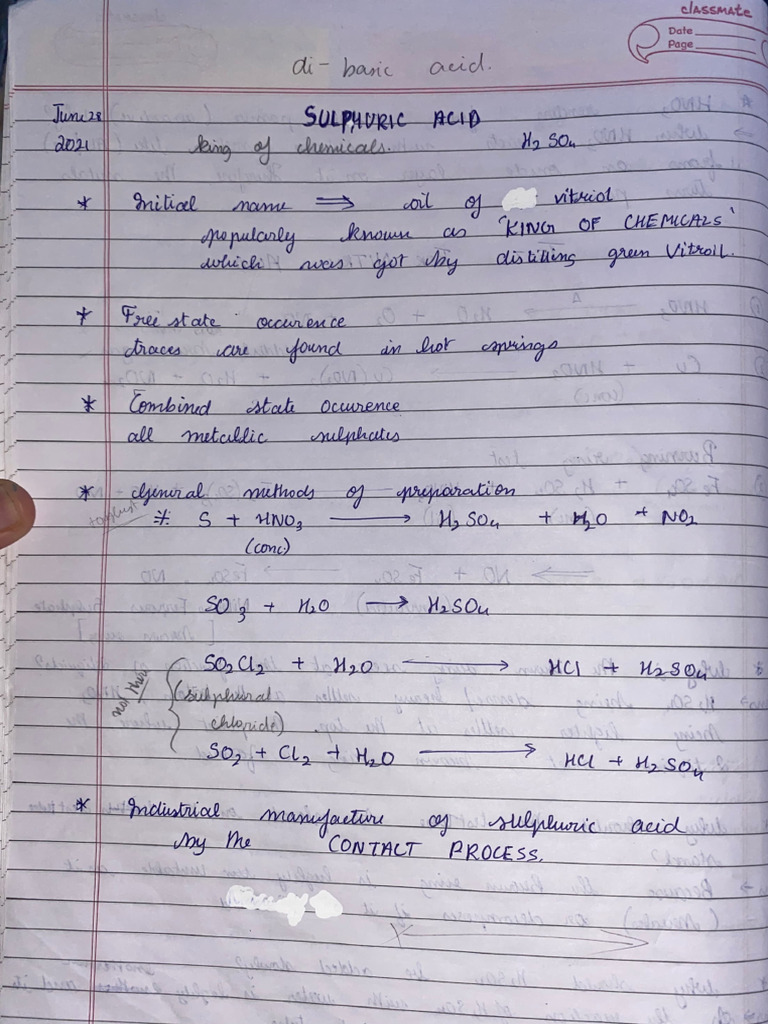 classmate
Date
Page
di-basic acid.
June 28
SULPHURIC ACID
2021
king of chemicals.
H2SO4
* Initial name ⟹ oil of vitriol
popularly known as 'KING OF CHEMICALS'
which was got by distilling green Vitroil.
* Free state occurence
traces are found in hot springs
* Combined state occurence
all metallic sulphates
* General methods of preparation
S + HNO3 ⟶ H2SO4 + H2O + NO2
(conc)
SO3 + H2O ⟶ H2SO4
SO2Cl2 + H2O ⟶ HCl + H2SO4
not there
(sulphural
chloride)
SO2 + Cl2 + H2O ⟶ HCl + H2SO4
* Industrial manufacture of sulphuric acid
by the CONTACT PROCESS.